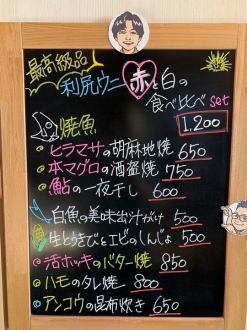 最高級品
利尻ウニ 赤と白の
食べ比べ set
1.200
焼魚
ヒラマサの胡麻地焼 650
本マグロの酒盗焼 750
鮎の一夜干し 600
白魚の美味出汁がけ 500
生とうきびとエビのしんじょ 500
活ホッキのバター焼 850
ハモのタレ焼 800
アンコウの昆布炊き 650